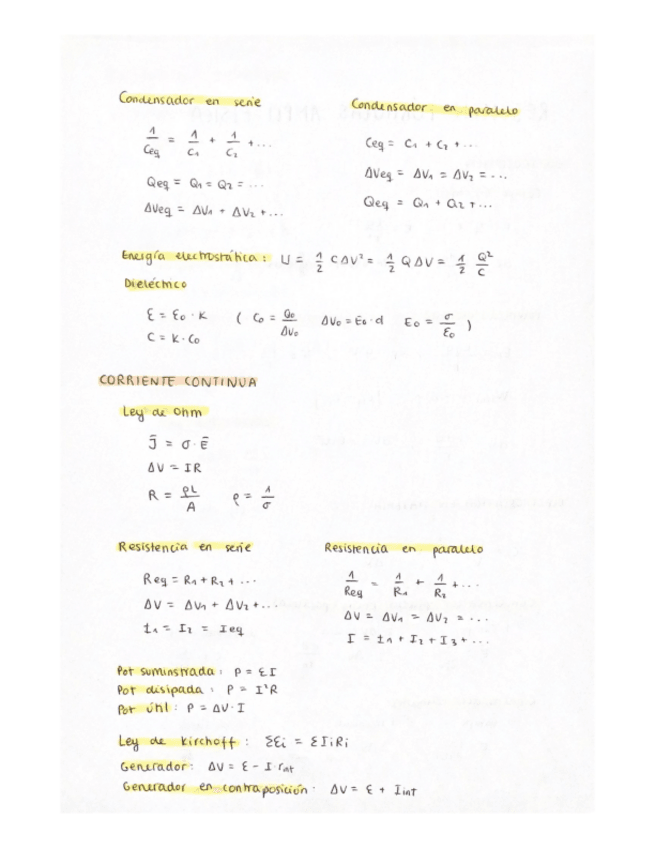 Condensador en serie
1/Ceq = 1/C₁ + 1/C₂ + ...
Qeq = Q₁ = Q₂ = ...
ΔVeq = ΔV₁ + ΔV₂ + ...
Condensador en paralelo
Ceq = C₁ + C₂ + ...
ΔVeq = ΔV₁ = ΔV₂ = ...
Qeq = Q₁ + Q₂ + ...
Energía electrostática: U = 1/2 CΔV² = 1/2 QΔV = 1/2 Q²/C
Dieléctrico
ε = ε₀ · K ( C₀ = Q₀/ΔV₀ ΔV₀ = E₀ · d E₀ = σ/ε₀ )
C = K · C₀
CORRIENTE CONTINUA
Ley de Ohm
J̄ = σ · Ē
ΔV = IR
R = ρL/A ρ = 1/σ
Resistencia en serie
Req = R₁ + R₂ + ...
ΔV = ΔV₁ + ΔV₂ + ...
I₁ = I₂ = Ieq
Resistencia en paralelo
1/Req = 1/R₁ + 1/R₂ + ...
ΔV = ΔV₁ = ΔV₂ = ...
I = I₁ + I₂ + I₃ + ...
Pot suministrada: P = εI
Pot disipada: P = I²R
Pot útil: P = ΔV·I
Ley de Kirchoff: Σεi = ΣIiRi
Generador: ΔV = ε - I·rint
Generador en contraposición: ΔV = ε + Iint